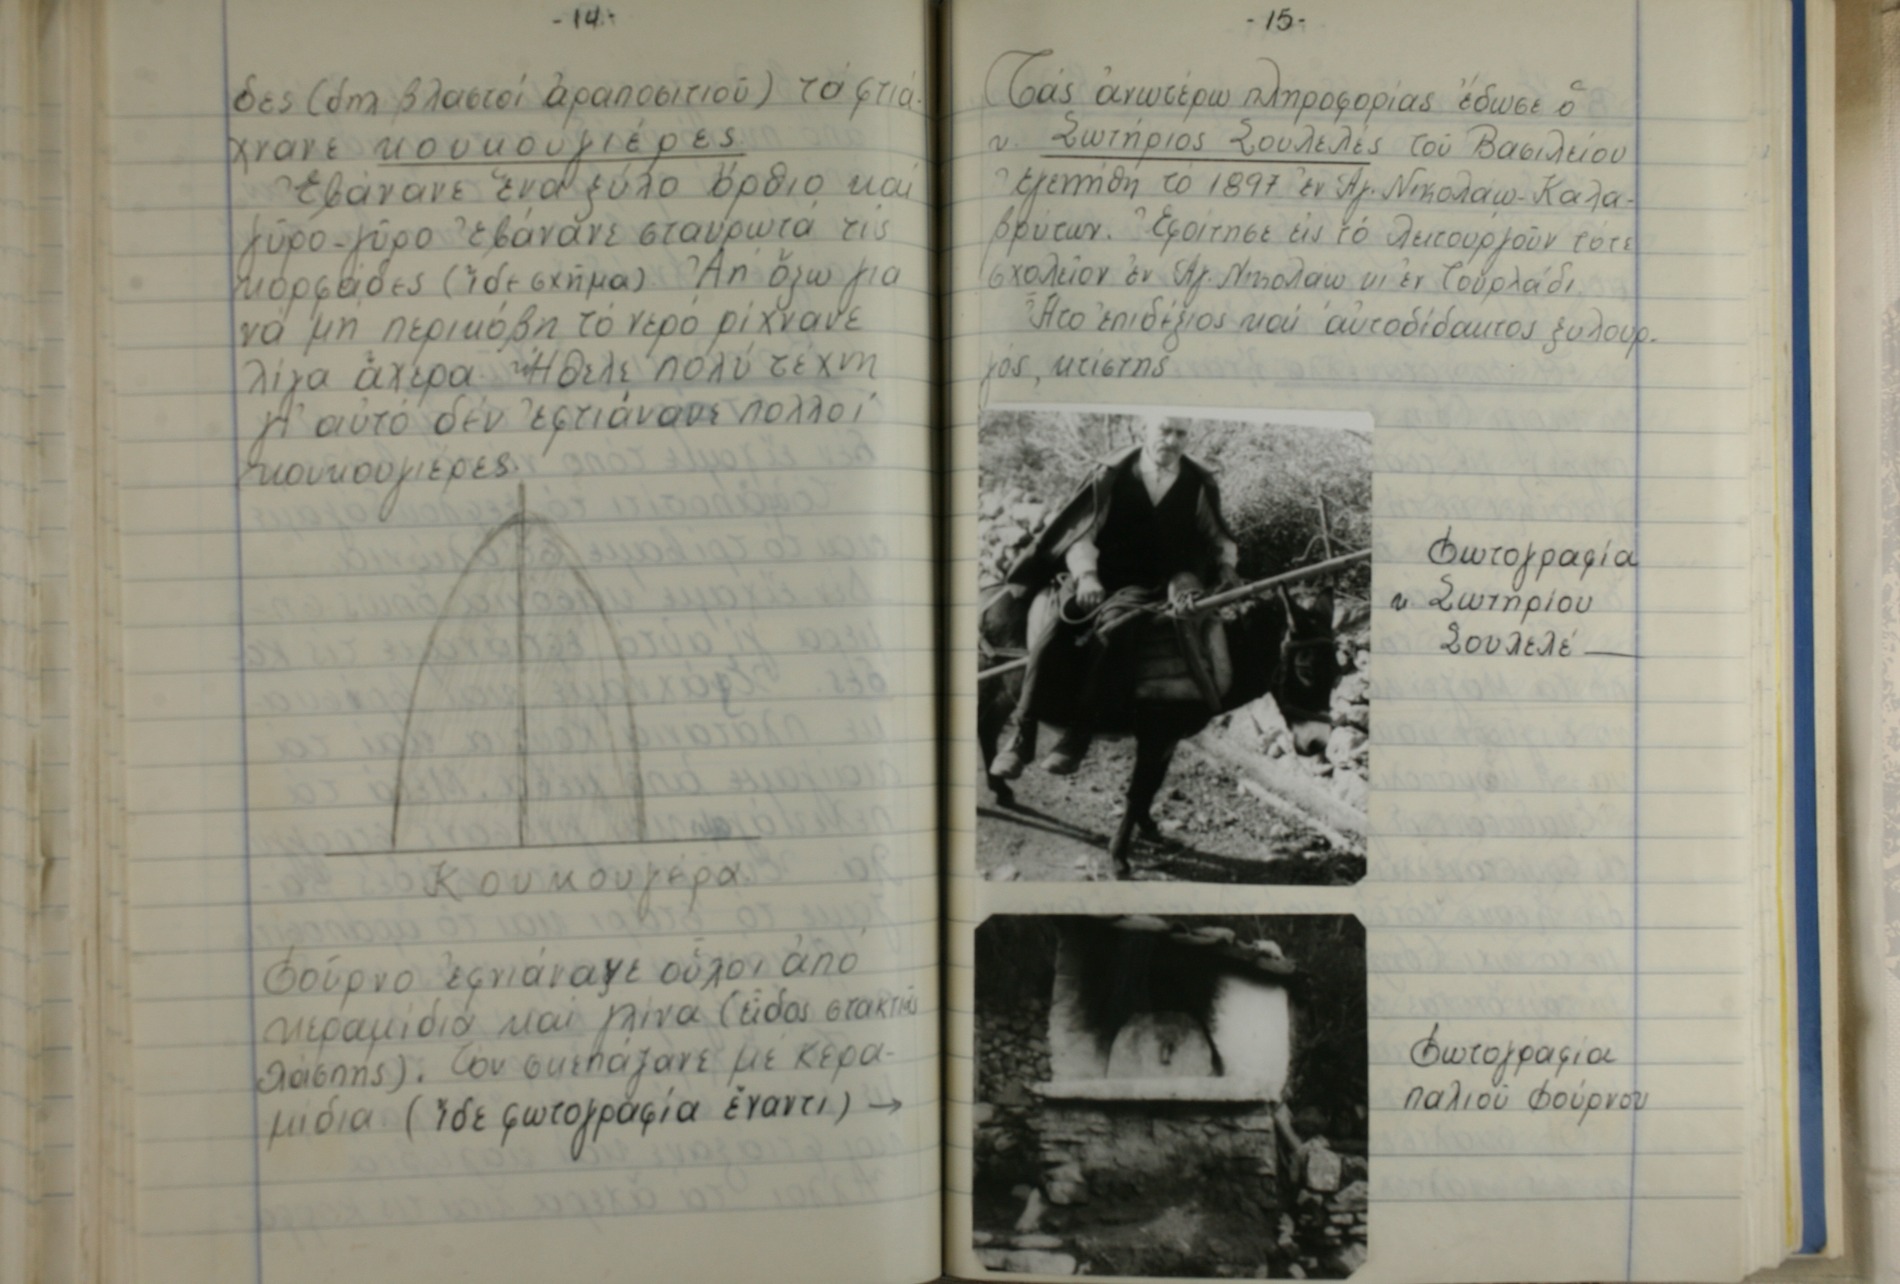 -14-
δες (δηλ βλαστοί ἀραποσιτιοῦ) τά φτιά-
χνανε κουκουγιέρες
Ἐβάνανε ἕνα ξύλο ὄρθιο καί
γῦρο-γῦρο ἐβάνανε σταυρωτά τίς
κορφάδες (ἴδε σχῆμα). Ἀπ' ὄξω γιά
νά μή περικόβη τό νερό ρίχνανε
λίγα ἄχερα. Ἤθελε πολύ τέχνη
γι' αὐτό δέν ἐφτιάνανε πολλοί
κουκουγιερες.
Κουκουγέρα
Φοῦρνο ἐφτιάνανε οὗλοι ἀπό
κεραμίδια καί γλίνα (εἶδος στακτιᾶς
λάσπης). Τόν σκεπάζανε μέ κερα-
μίδια. (ἴδε φωτογραφία ἔναντι) →
-15-
Τάς ἀνωτέρω πληροφορίας ἔδωσε ὁ
κ. Σωτήριος Σουλελές τοῦ Βασιλείου
ἐγεννήθη τό 1897 ἐν Ἁγ. Νικολάω-Καλα-
βρύτων. Ἐφοίτησε εἰς τό λειτουργοῦν τότε
σχολεῖον ἐν Ἁγ. Νικολάω κι ἐν Τουρλάδι.
Ἦτο ἐπιδέξιος καί αὐτοδίδακτος ξυλουρ-
γός, κτίστης
Φωτογραφία
κ Σωτηρίου
Σουλελέ
Φωτογραφία
παλιοῦ Φούρνου